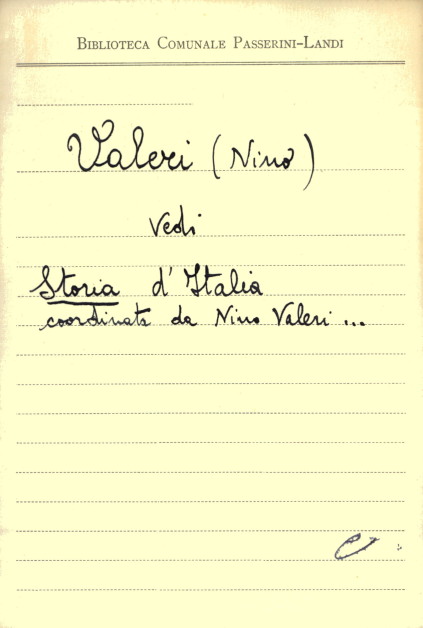 BIBLIOTECA COMUNALE PASSERINI-LANDI
Valeri (Nino)
Vedi
Storia d'Italia
coordinata da Nino Valeri ...